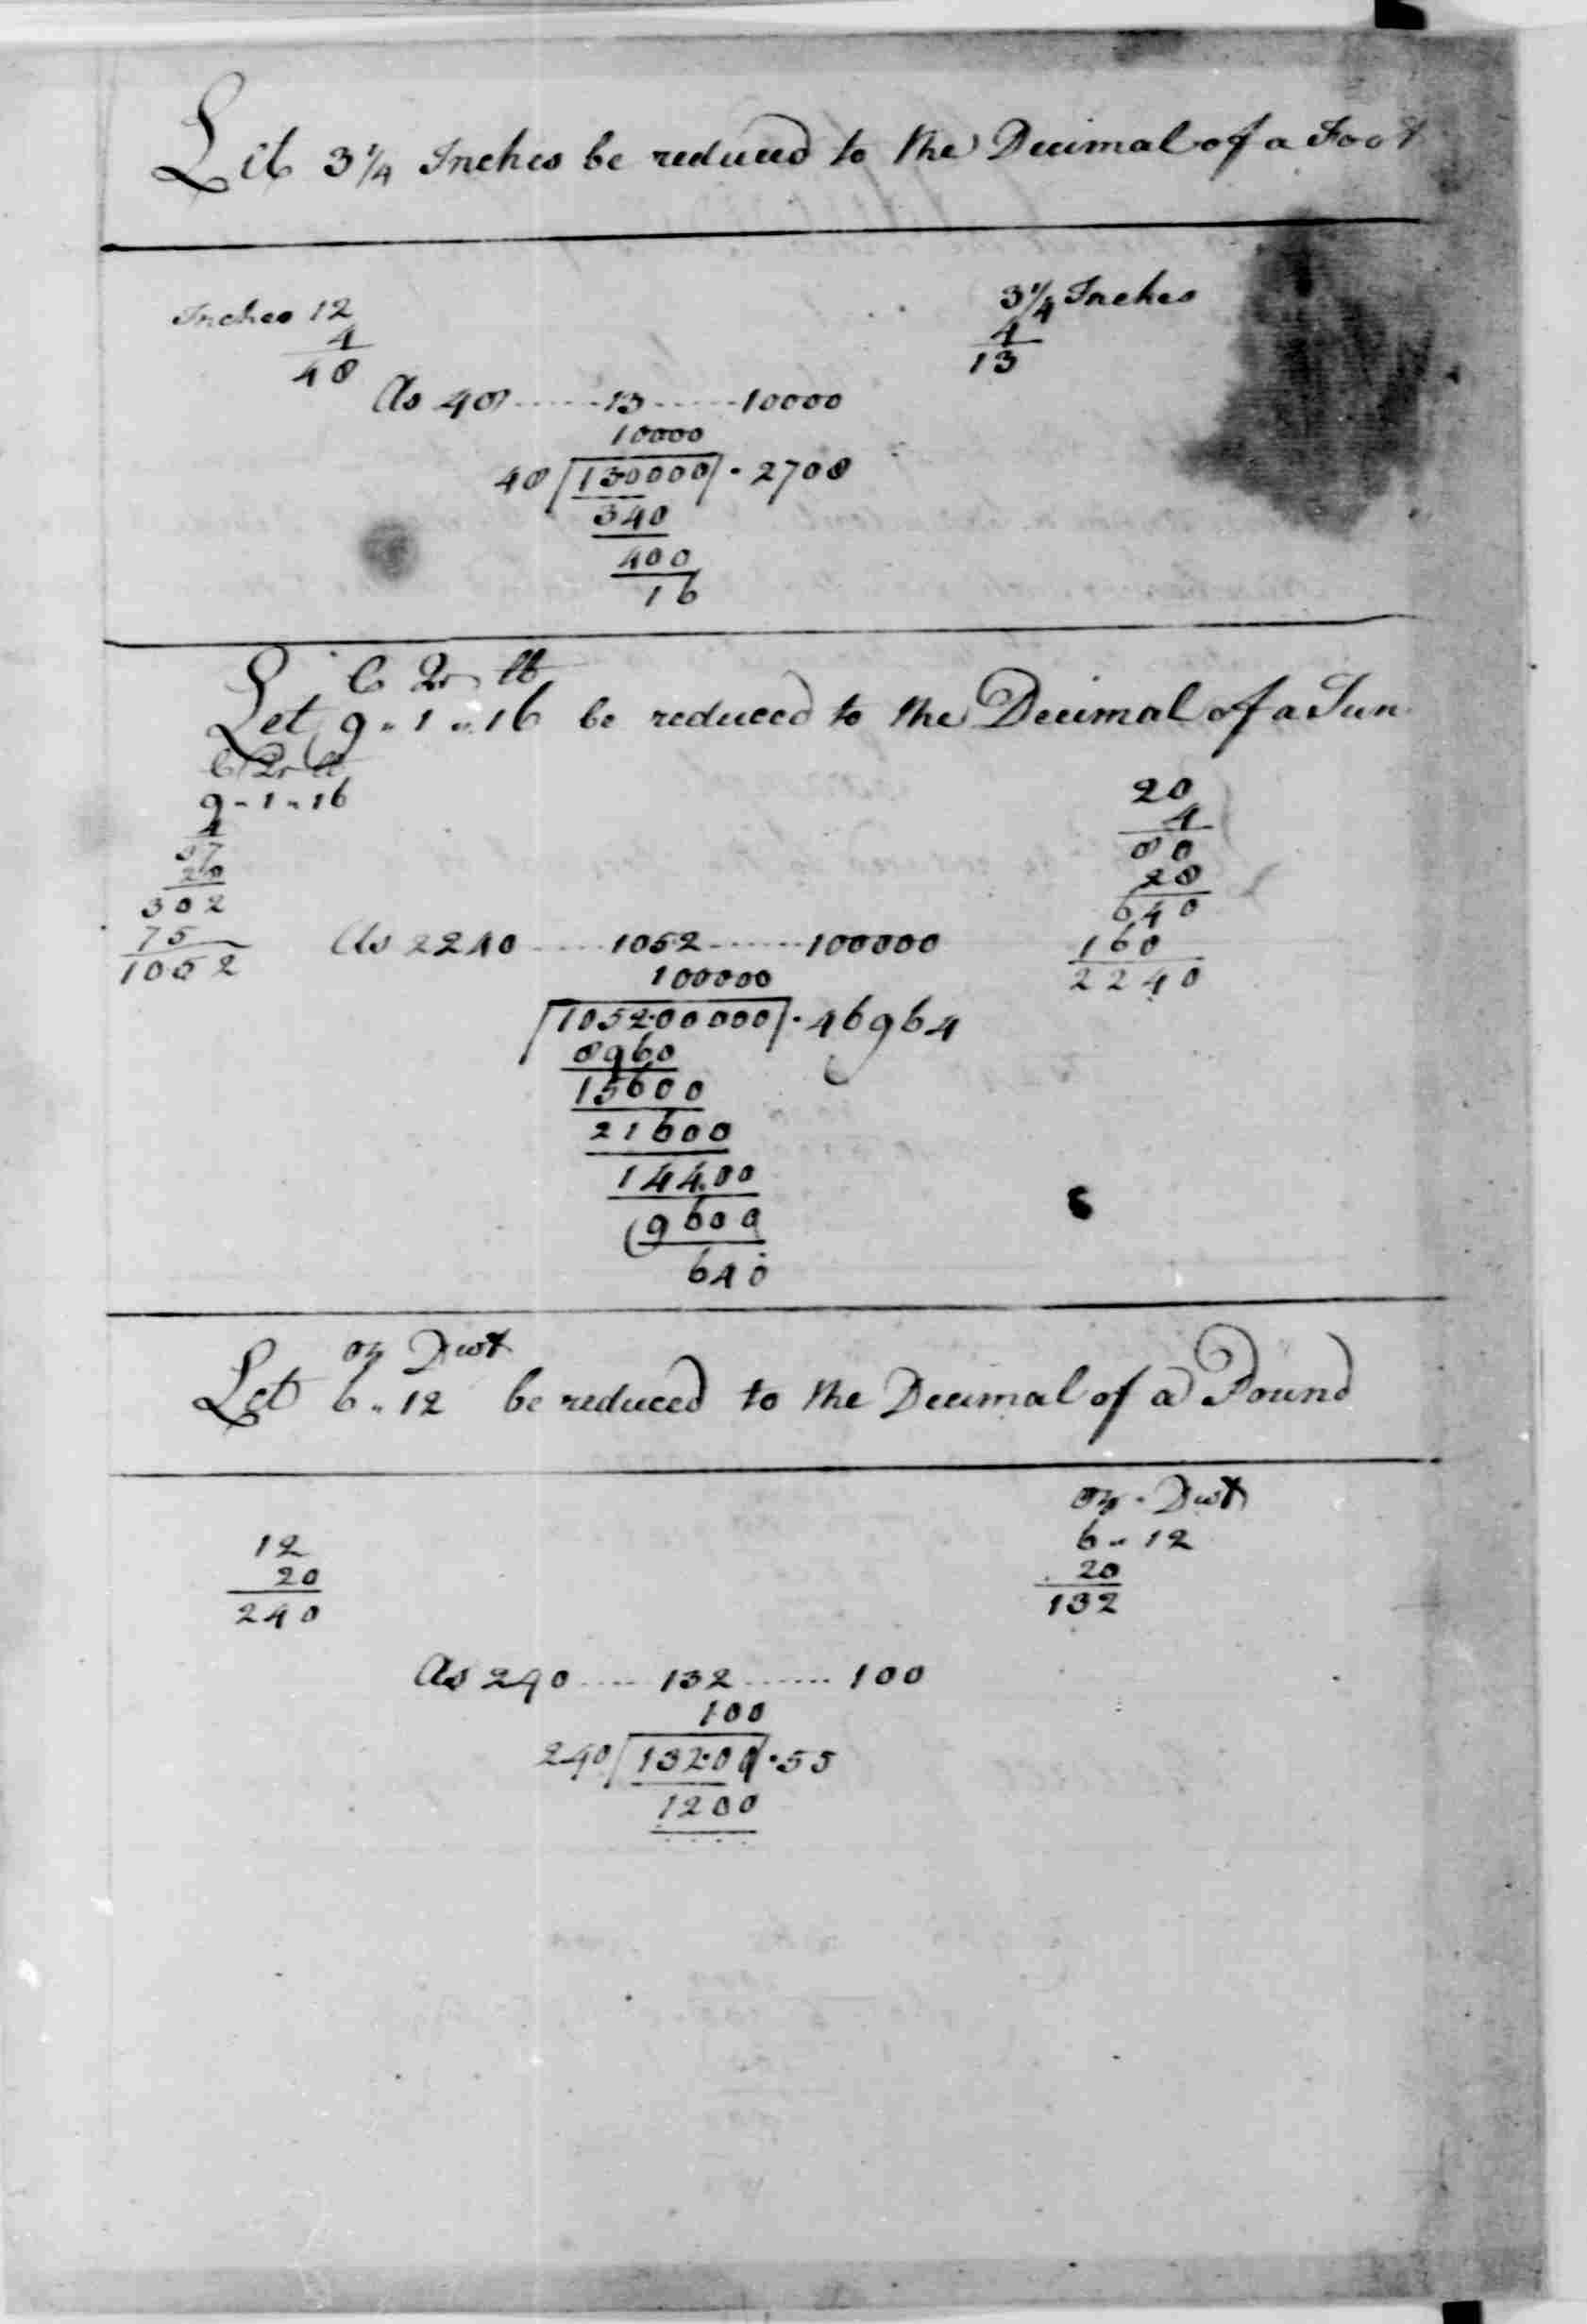 Let 3 1/4 Inches be reduced to the Decimal of a Foot
Inches 12
4
48
3 1/4 Inches
4
13
As 48 ...... 13 ...... 10000
10000
48 130000 . 2708
340
400
16
C Qr lb
Let 9 .. 1 .. 16 be reduced to the Decimal of a Tun
C Qr lb
9 .. 1 .. 16
4
37
28
302
75
1052
20
4
80
28
640
160
2240
As 2240 ...... 1052 ...... 100000
100000
105200000 . 46964
8960
15600
21600
14400
9600
640
oz Dwt
Let 6 .. 12 be reduced to the Decimal of a Pound
12
20
240
oz . Dwt
6 .. 12
20
132
As 240 ...... 132 ...... 100
100
240 132.00 .55
1200